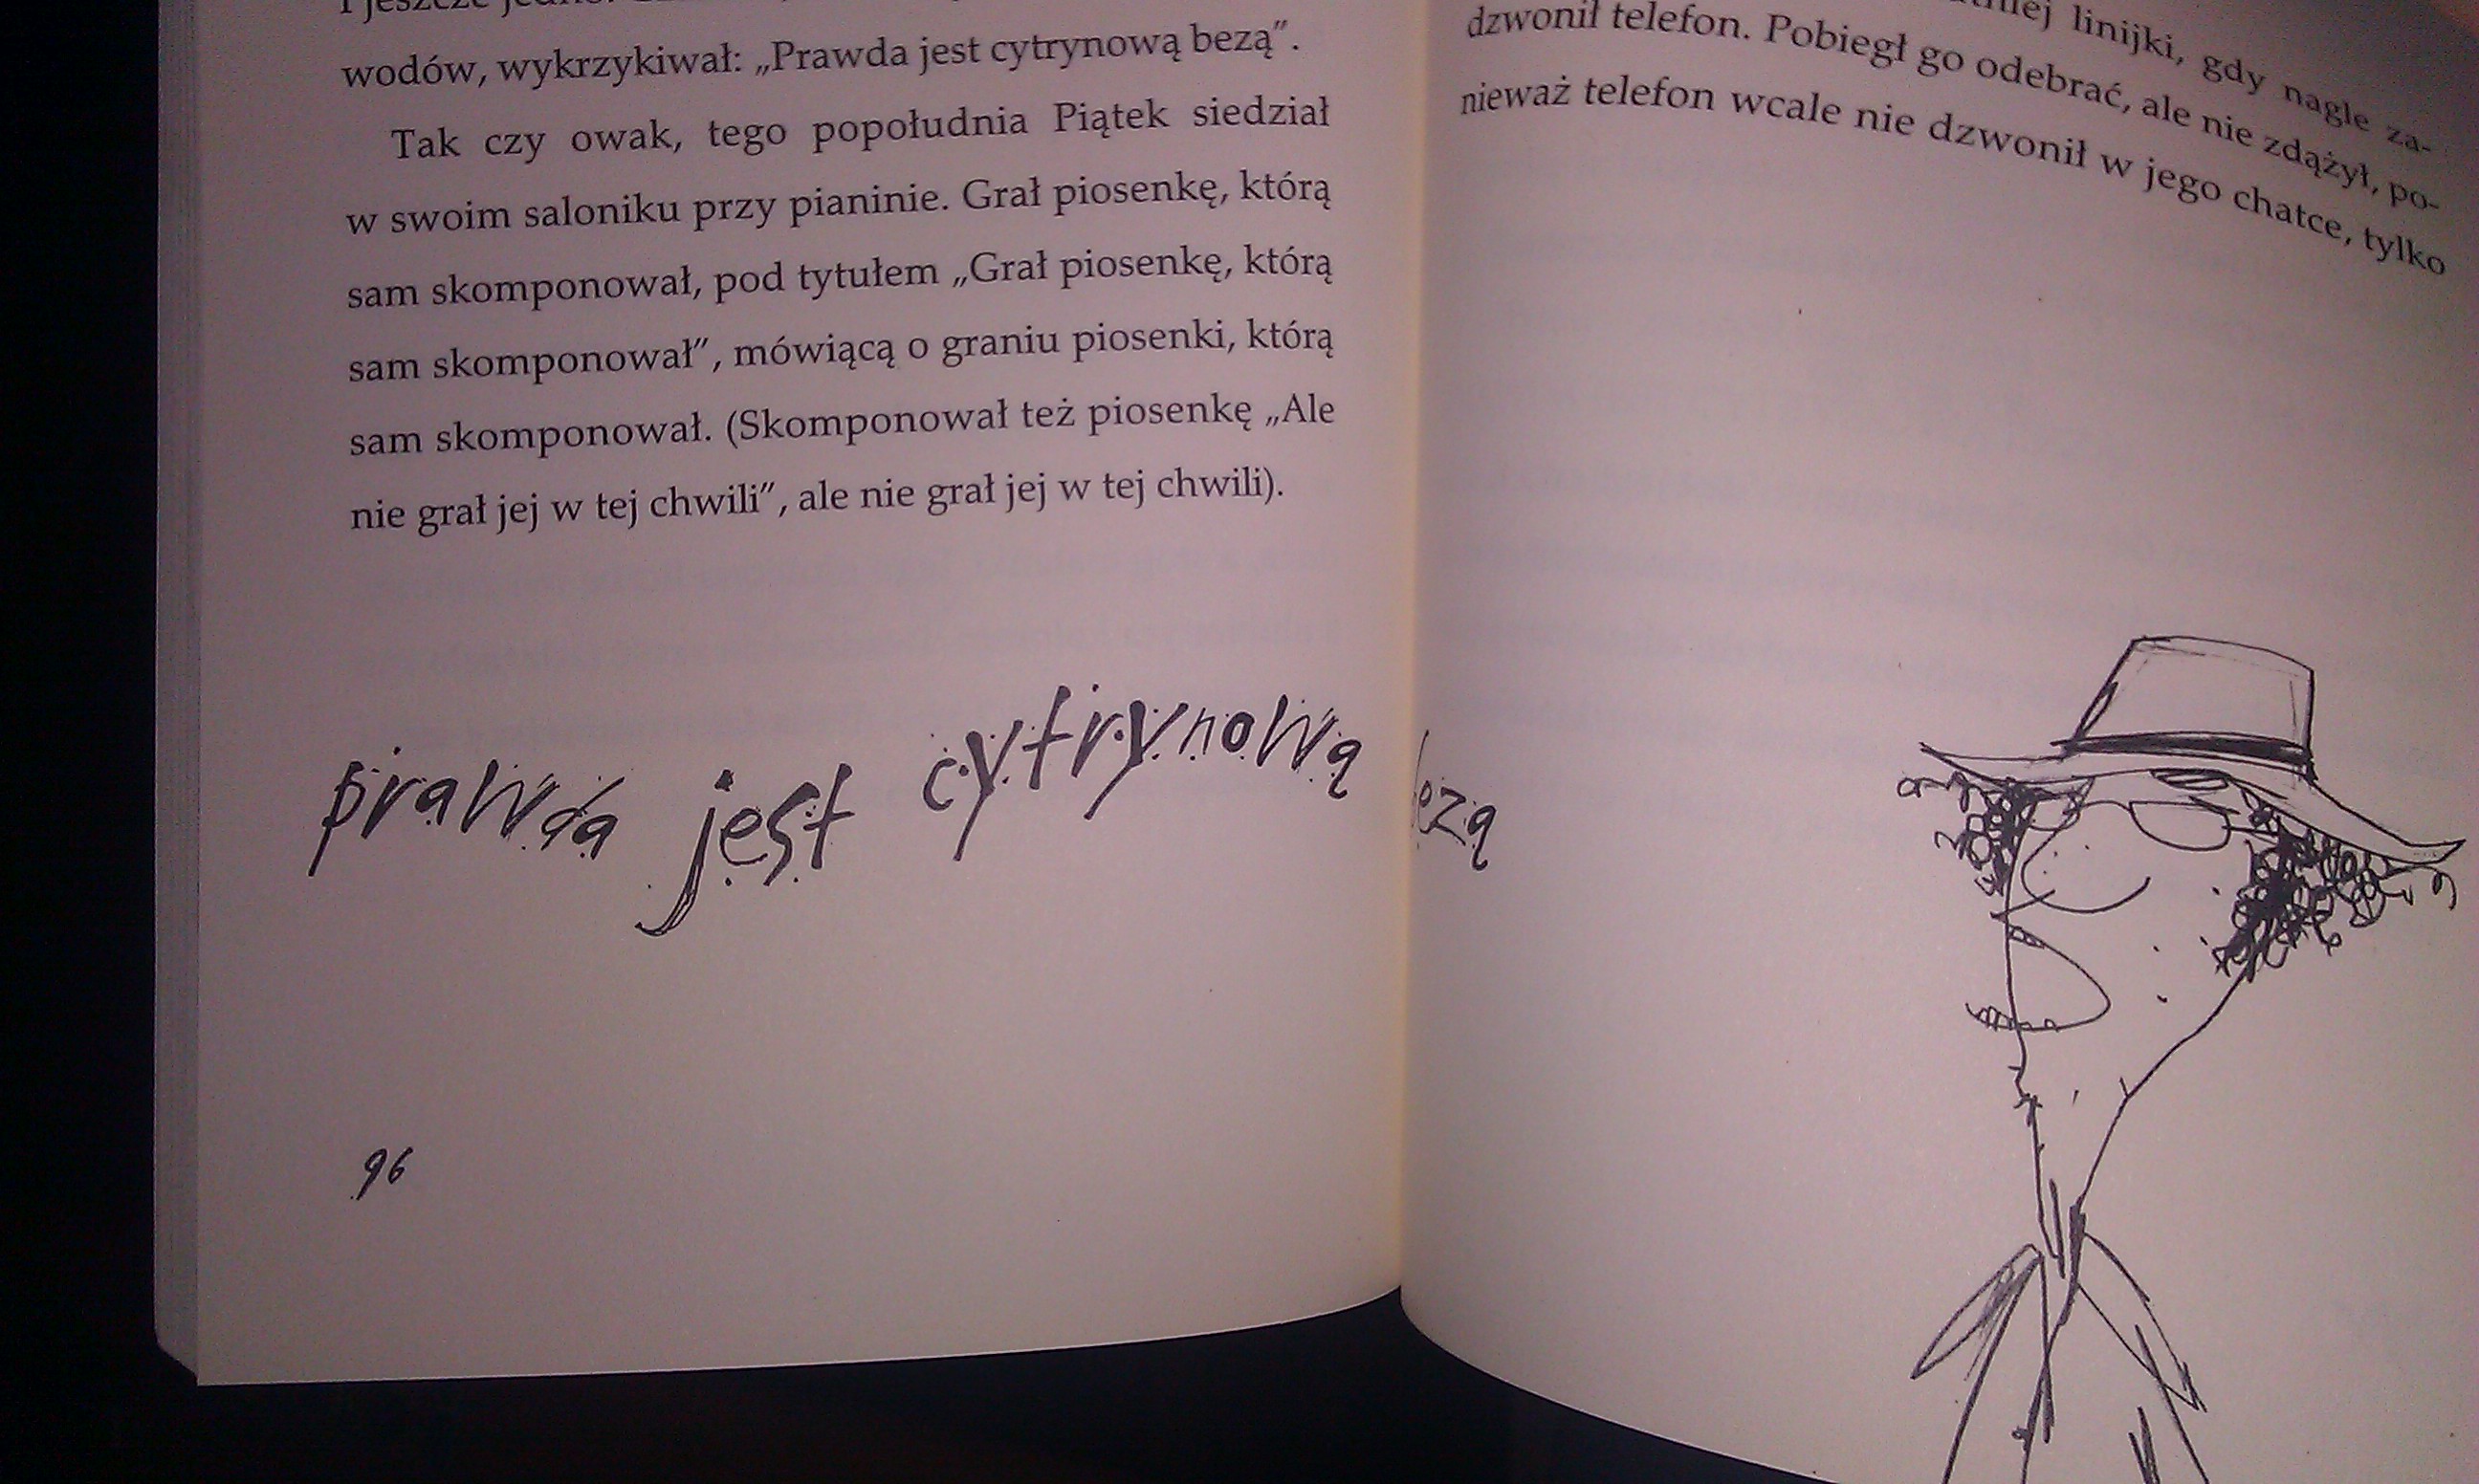 wodów, wykrzykiwał: „Prawda jest cytrynową bezą”.
Tak czy owak, tego popołudnia Piątek siedział
w swoim saloniku przy pianinie. Grał piosenkę, którą
sam skomponował, pod tytułem „Grał piosenkę, którą
sam skomponował”, mówiącą o graniu piosenki, którą
sam skomponował. (Skomponował też piosenkę „Ale
nie grał jej w tej chwili”, ale nie grał jej w tej chwili).
prawda jest cytrynową ezą
96
linijki, gdy nagle za-
dzwonił telefon. Pobiegł go odebrać, ale nie zdążył, po-
nieważ telefon wcale nie dzwonił w jego chatce, tylko